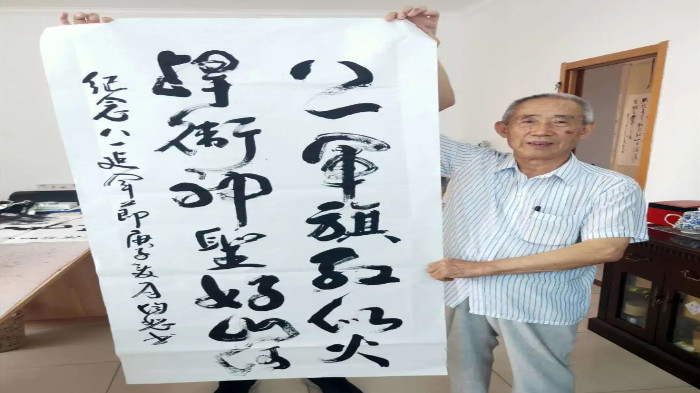 八一軍旗红似火
捍衛神聖好山河
纪念八一建军節庚子夏月书